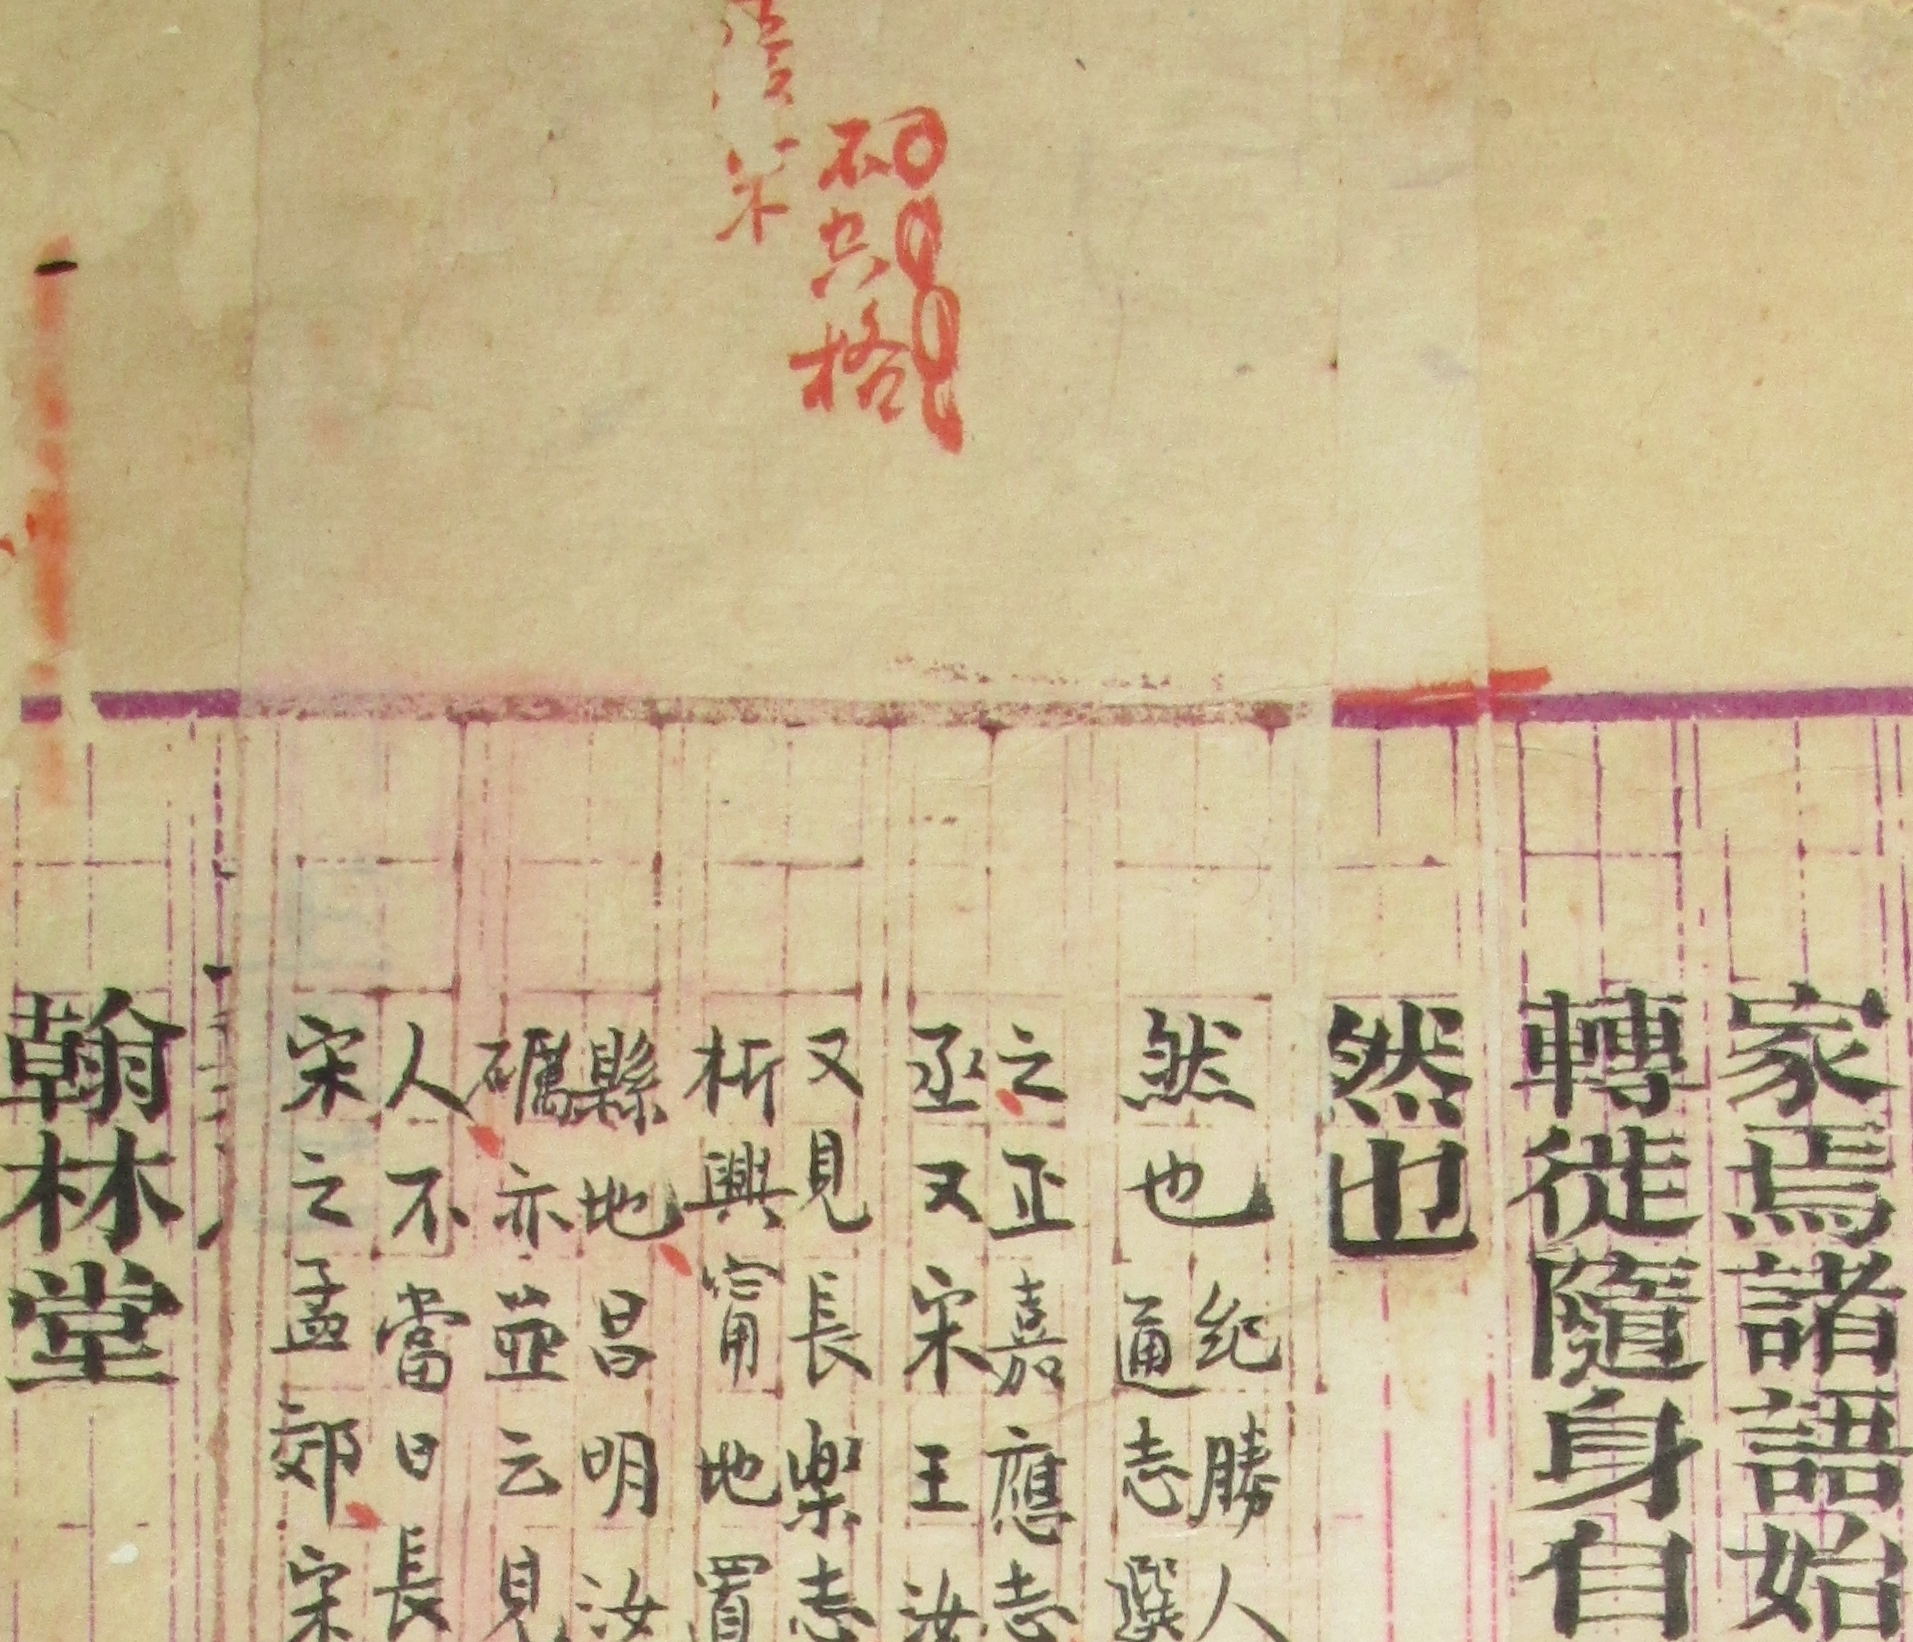 家焉諸語始
轉徙隨身自
然也
然也
紀勝人
通志選
之正嘉應志
丞又宋王汝
又見長樂志
析興甯地置
縣地昌明汝
礪亦並云見
人不當日長
宋之孟郊宋
翰林堂
不共格